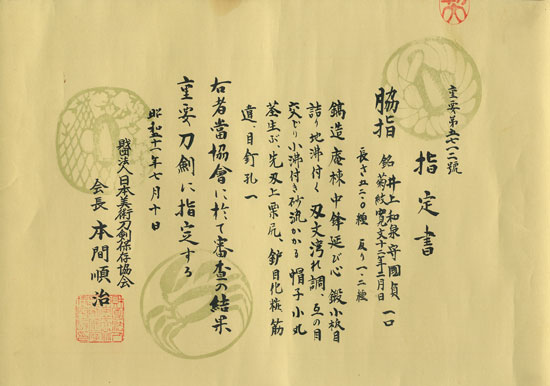 重要第五七一二號
指定書
脇指 銘 井上和泉守國貞 一口
菊紋 寛文十二年二月日
長さ五二・〇糎 反り一・二糎
鎬造 庵棟 中鋒延び心 鍛小板目
詰り 地沸付く 刃文 湾れ調 互の目
交じり 小沸付き 砂流かかる 帽子小丸
茎生ぶ 先刃上栗尻 鑢目化粧筋
違 目釘孔一
右者當協會に於て審査の結果
重要刀剣に指定する
昭和五十一年七月十日
財団法人日本美術刀剣保存協会
会長 本間順治